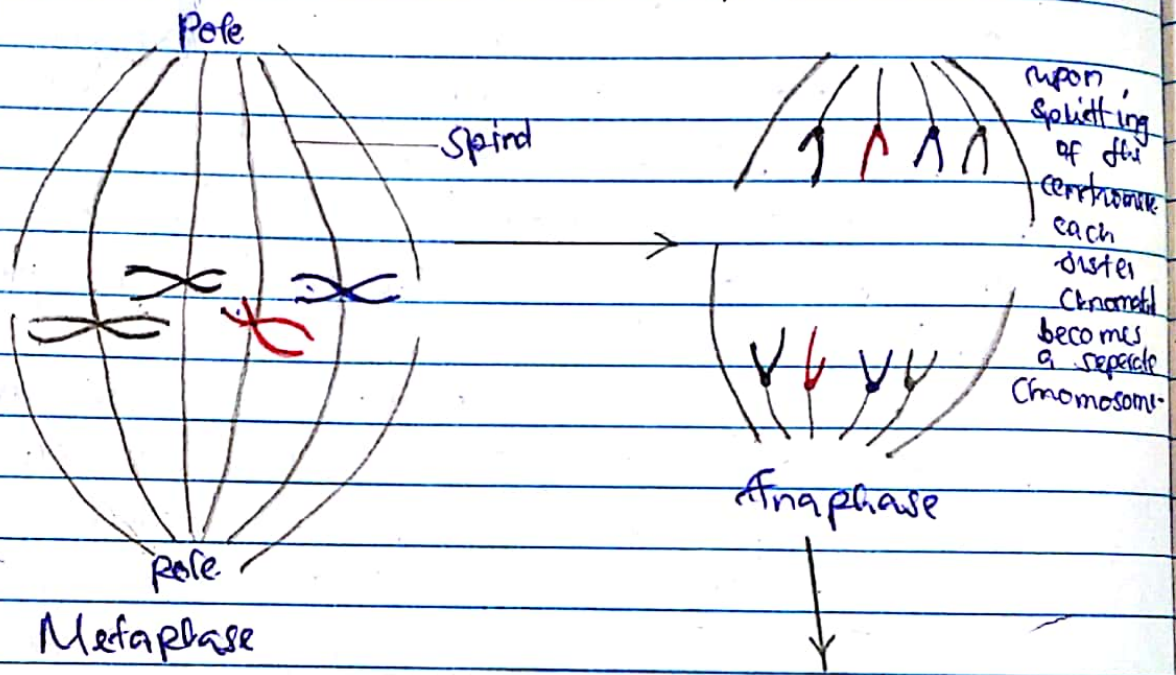 Pole
Spind
pole
Metaphase
upon
splitting
of the
each
sister
Chromatid
becomes
a seperate
Chromosome
Anaphase